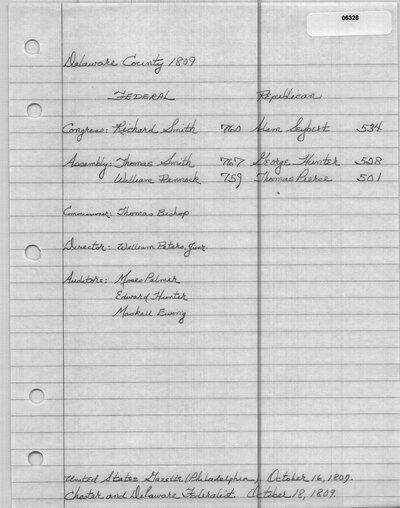 06328
Delaware County 1809
FEDERAL Republican
Congress: Richard Smith 760 Adam Seybert 534
Assembly: Thomas Smith 767 George Hunter 508
William Pennock 759 Thomas Pierce 501
Commissioner: Thomas Bishop
Director: William Peters, Junr.
Auditors: Moses Palmer
Edward Hunter
Maskell Ewing
United States Gazette (Philadelphia), October 16, 1809.
Chester and Delaware Federalist. October 18, 1809.